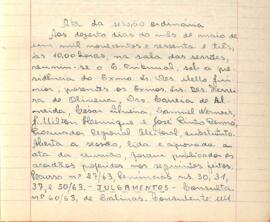 Ata da sessão ordinaria
Aos dezoito dias do mês de maio de
um mil novecentos e sessenta e três,
às 10,00 horas, na sala das sessões,
reuniu-se o E. Tribunal sob a pre
sidência do Exmo. Sr. Des. Mello Jú
nior, presentes os Exmos. Srs. Des. Ferreira
de Oliveira, Drs. Correia de Al
meida, Cesar Silveira, Samuel Werneck,
J. Milton Henrique e José Pinto Renno,
Procurador Regional Eleitoral, substituto.
Aberta a sessão, lida e aprovada a
ata da reunião foram publicados os
acórdãos proferidos nos seguintes autos:
Recurso nº 27/63, denúncias ns. 30, 31,
37, e 50/63. - JULGAMENTOS - Consulta
nº 60/63, de Salinas, Consulente